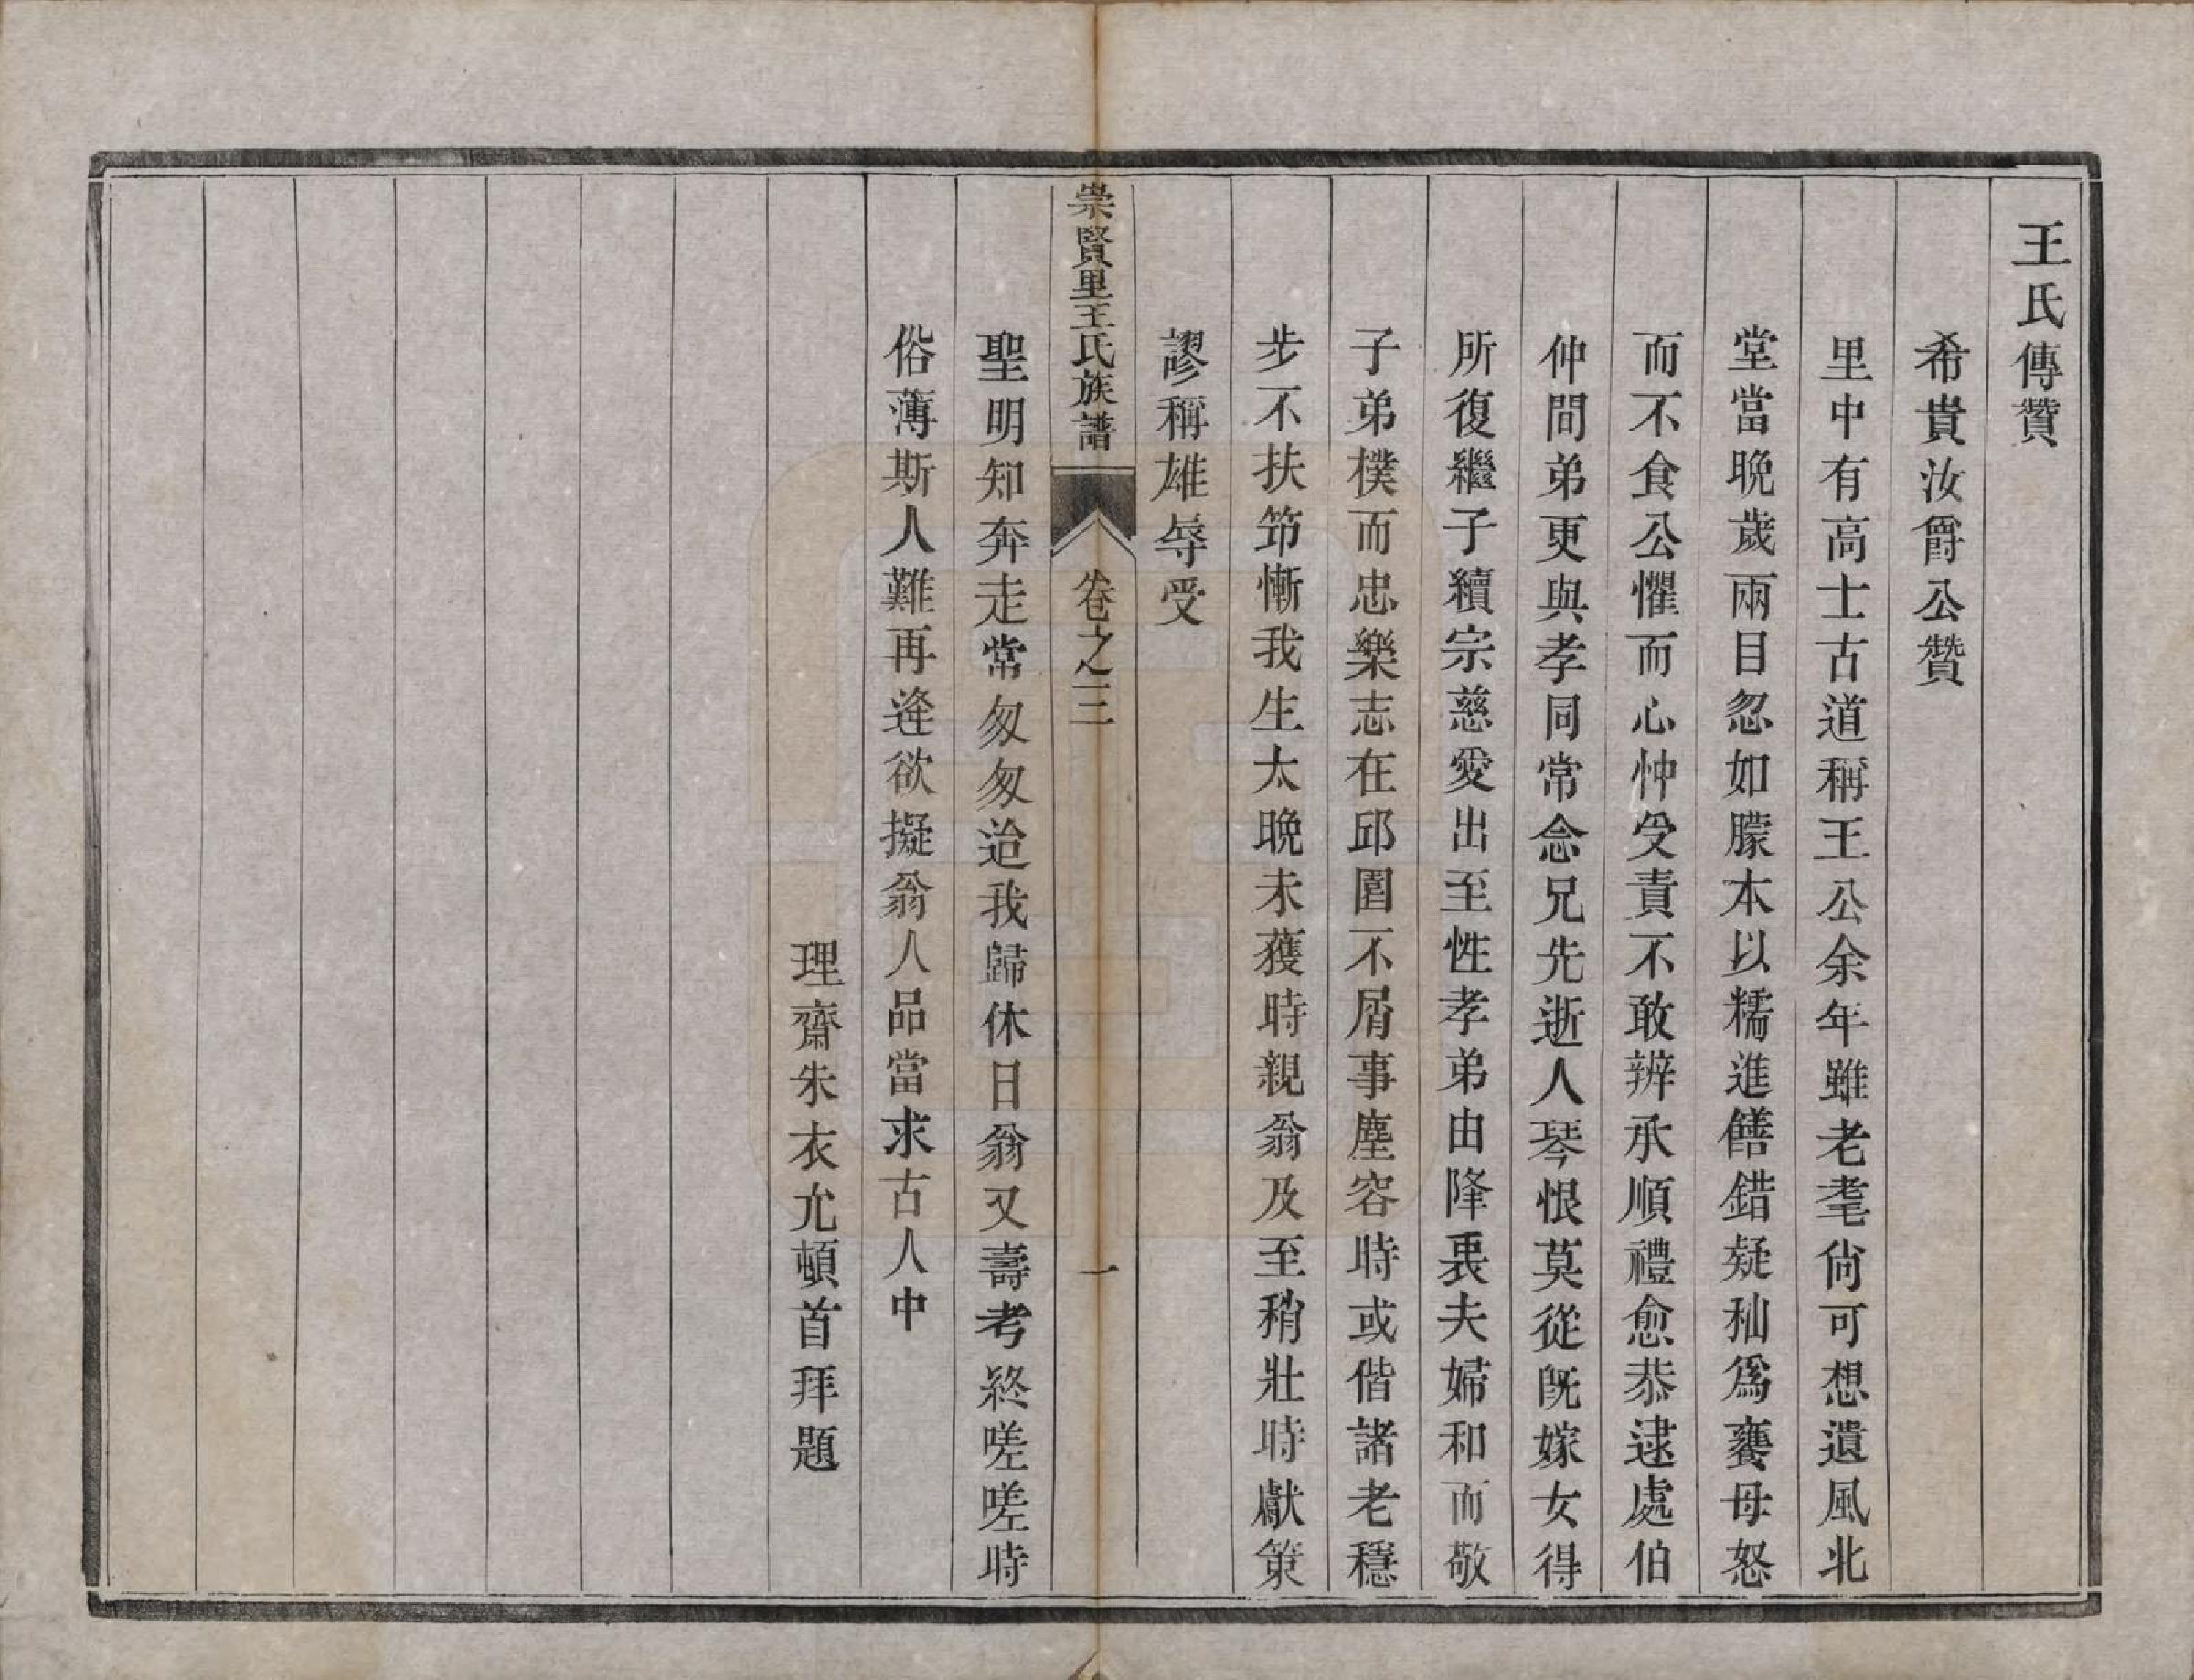 王氏傳贊
希貴汝爵公贊
里中有高士古道稱王公余年雖老耄尙可想遺風北
堂當晚歲兩目忽如朦本以糯進饍錯疑秈爲饔母怒
而不食公懼而心忡受責不敢辨承順禮愈恭逮處伯
仲間弟更與孝同常念兄先逝人琴恨莫從旣嫁女得
所復繼子續宗慈愛出至性孝弟由降衷夫婦和而敬
子弟樸而忠樂志在邱園不屑事塵容時或偕諸老穩
步不扶筇慚我生太晚未獲時親翁及至稍壯時獻策
謬稱雄辱受
崇賢里王氏族譜 卷之三 一
聖明知奔走常匆匆迨我歸休日翁又壽考終嗟嗟時
俗薄斯人難再逄欲擬翁人品當求古人中
理齋朱衣允頓首拜題